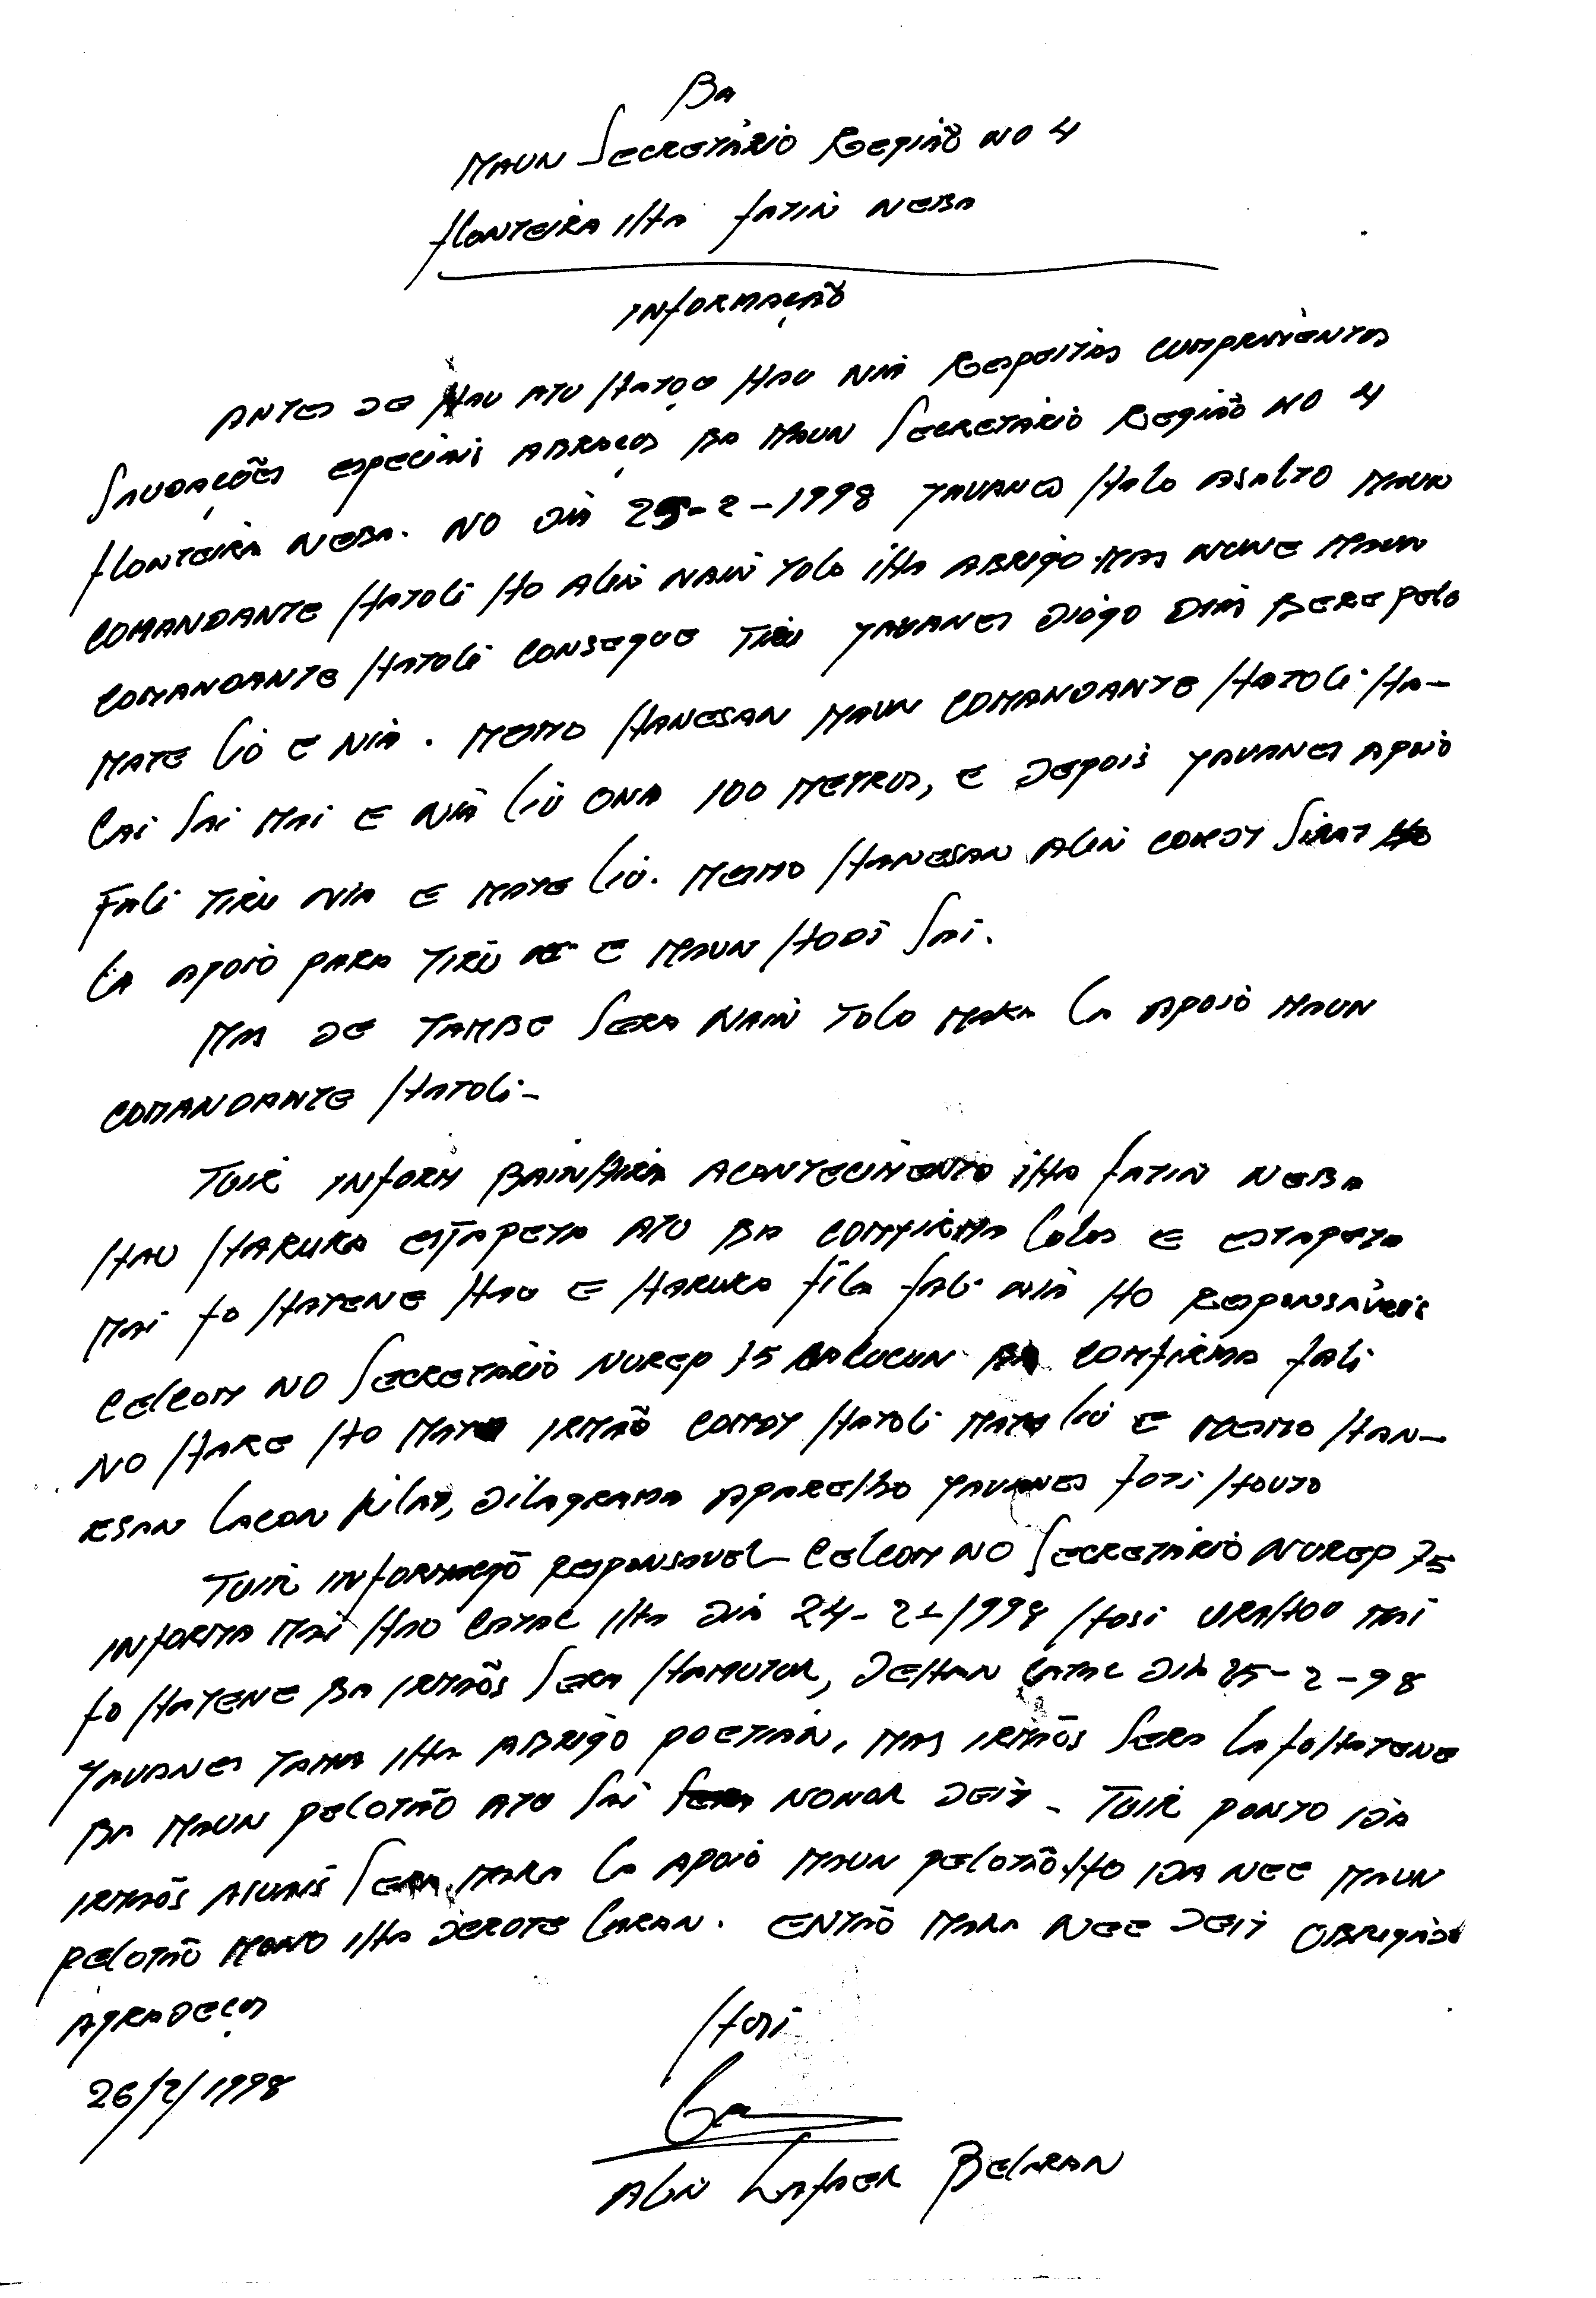 Ba
Maun Secretário Região no 4
flonteira iha fatin neba
Informação
Antes de hau atu hatoo hau nia Respeitas cumprimentos
Saudações especiais abraços ba Maun Secretário Região no 4
flonteira neba. No dia 25-2-1998 Javanes halo asalto Maun
Comandante Hatoli ho alin nain tolo iha abrigo. Mas nune Maun
Comandante Hatoli consegue tiru Javanes Diogo Dias Bere pelo
mate lió e nia. Mesmo hanesan Maun Comandante Hatoli ha-
lai sai mai e nia liu ona 100 metros, e depois Javanes apoio
Fali tiru nia e mate liu. Mesmo hanesan alin
la apoio para tiru e Maun hodi sai.
Mas de tambe sera nain tolo maka la apoio Maun
Comandante Hatoli-
Tuir inform bainhira acontecimento iha fatin neba
hau haruka estapeta atu ba comfirma lalas e estapeta
mai fo hatene hau e haruka fila fali nia ho Responsáveis
Celcom no Secretário Nurep 75 Lalucun ba comfirma fali
no hare ho irmão comdt Hatoli mate liu e mesmo han-
esan lacon kilat, dilagrama aparelho Javanes foti houto
Tuir informaçõ Responsavel Celcom no Secretário Nurep 75
informa mai hau catac iha dia 24-2-1998 hosi urahoo mai
fo hatene ba irmãos sera hamutuk, dehan catac dia 25-2-98
Javanes tama iha abrigo poetian, mas irmãos sera la fo hatene
ba Maun pelotão atu sai nonok deit - Tuir ponto ida
irmãos sera maka la apoio Maun pelotão ho ida nee Maun
pelotão iha derote laran. Então maka nee deit obrigado
Agradeços
26/2/1998
Hosi
Alin Lafaek Belaran